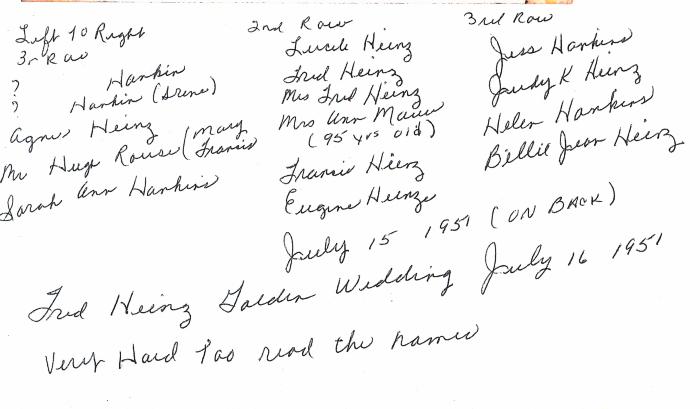 Left to Right
3r Row
? Hankin
? Hankin (Irene)
Agnes Heinz
Mr Hugh Rouse (Mary
Francis
Sarah Ann Hankins
2nd Row
Lucile Heinz
Fred Heinz
Mrs Fred Heinz
Mrs Ann
(95 yrs old)
Francis Heinz
Eugene Heinze
3rd Row
Jess Hankins
Judy K Heinz
Helen Hankins
Billie Jean Heinz
July 15 1951 (ON BACK)
Fred Heinz Golden Wedding July 16 1951
Very Hard Too read the names